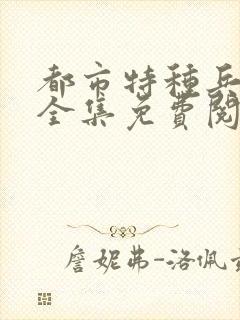 都市特种兵
全集免費閱
詹妮弗-洛佩兹